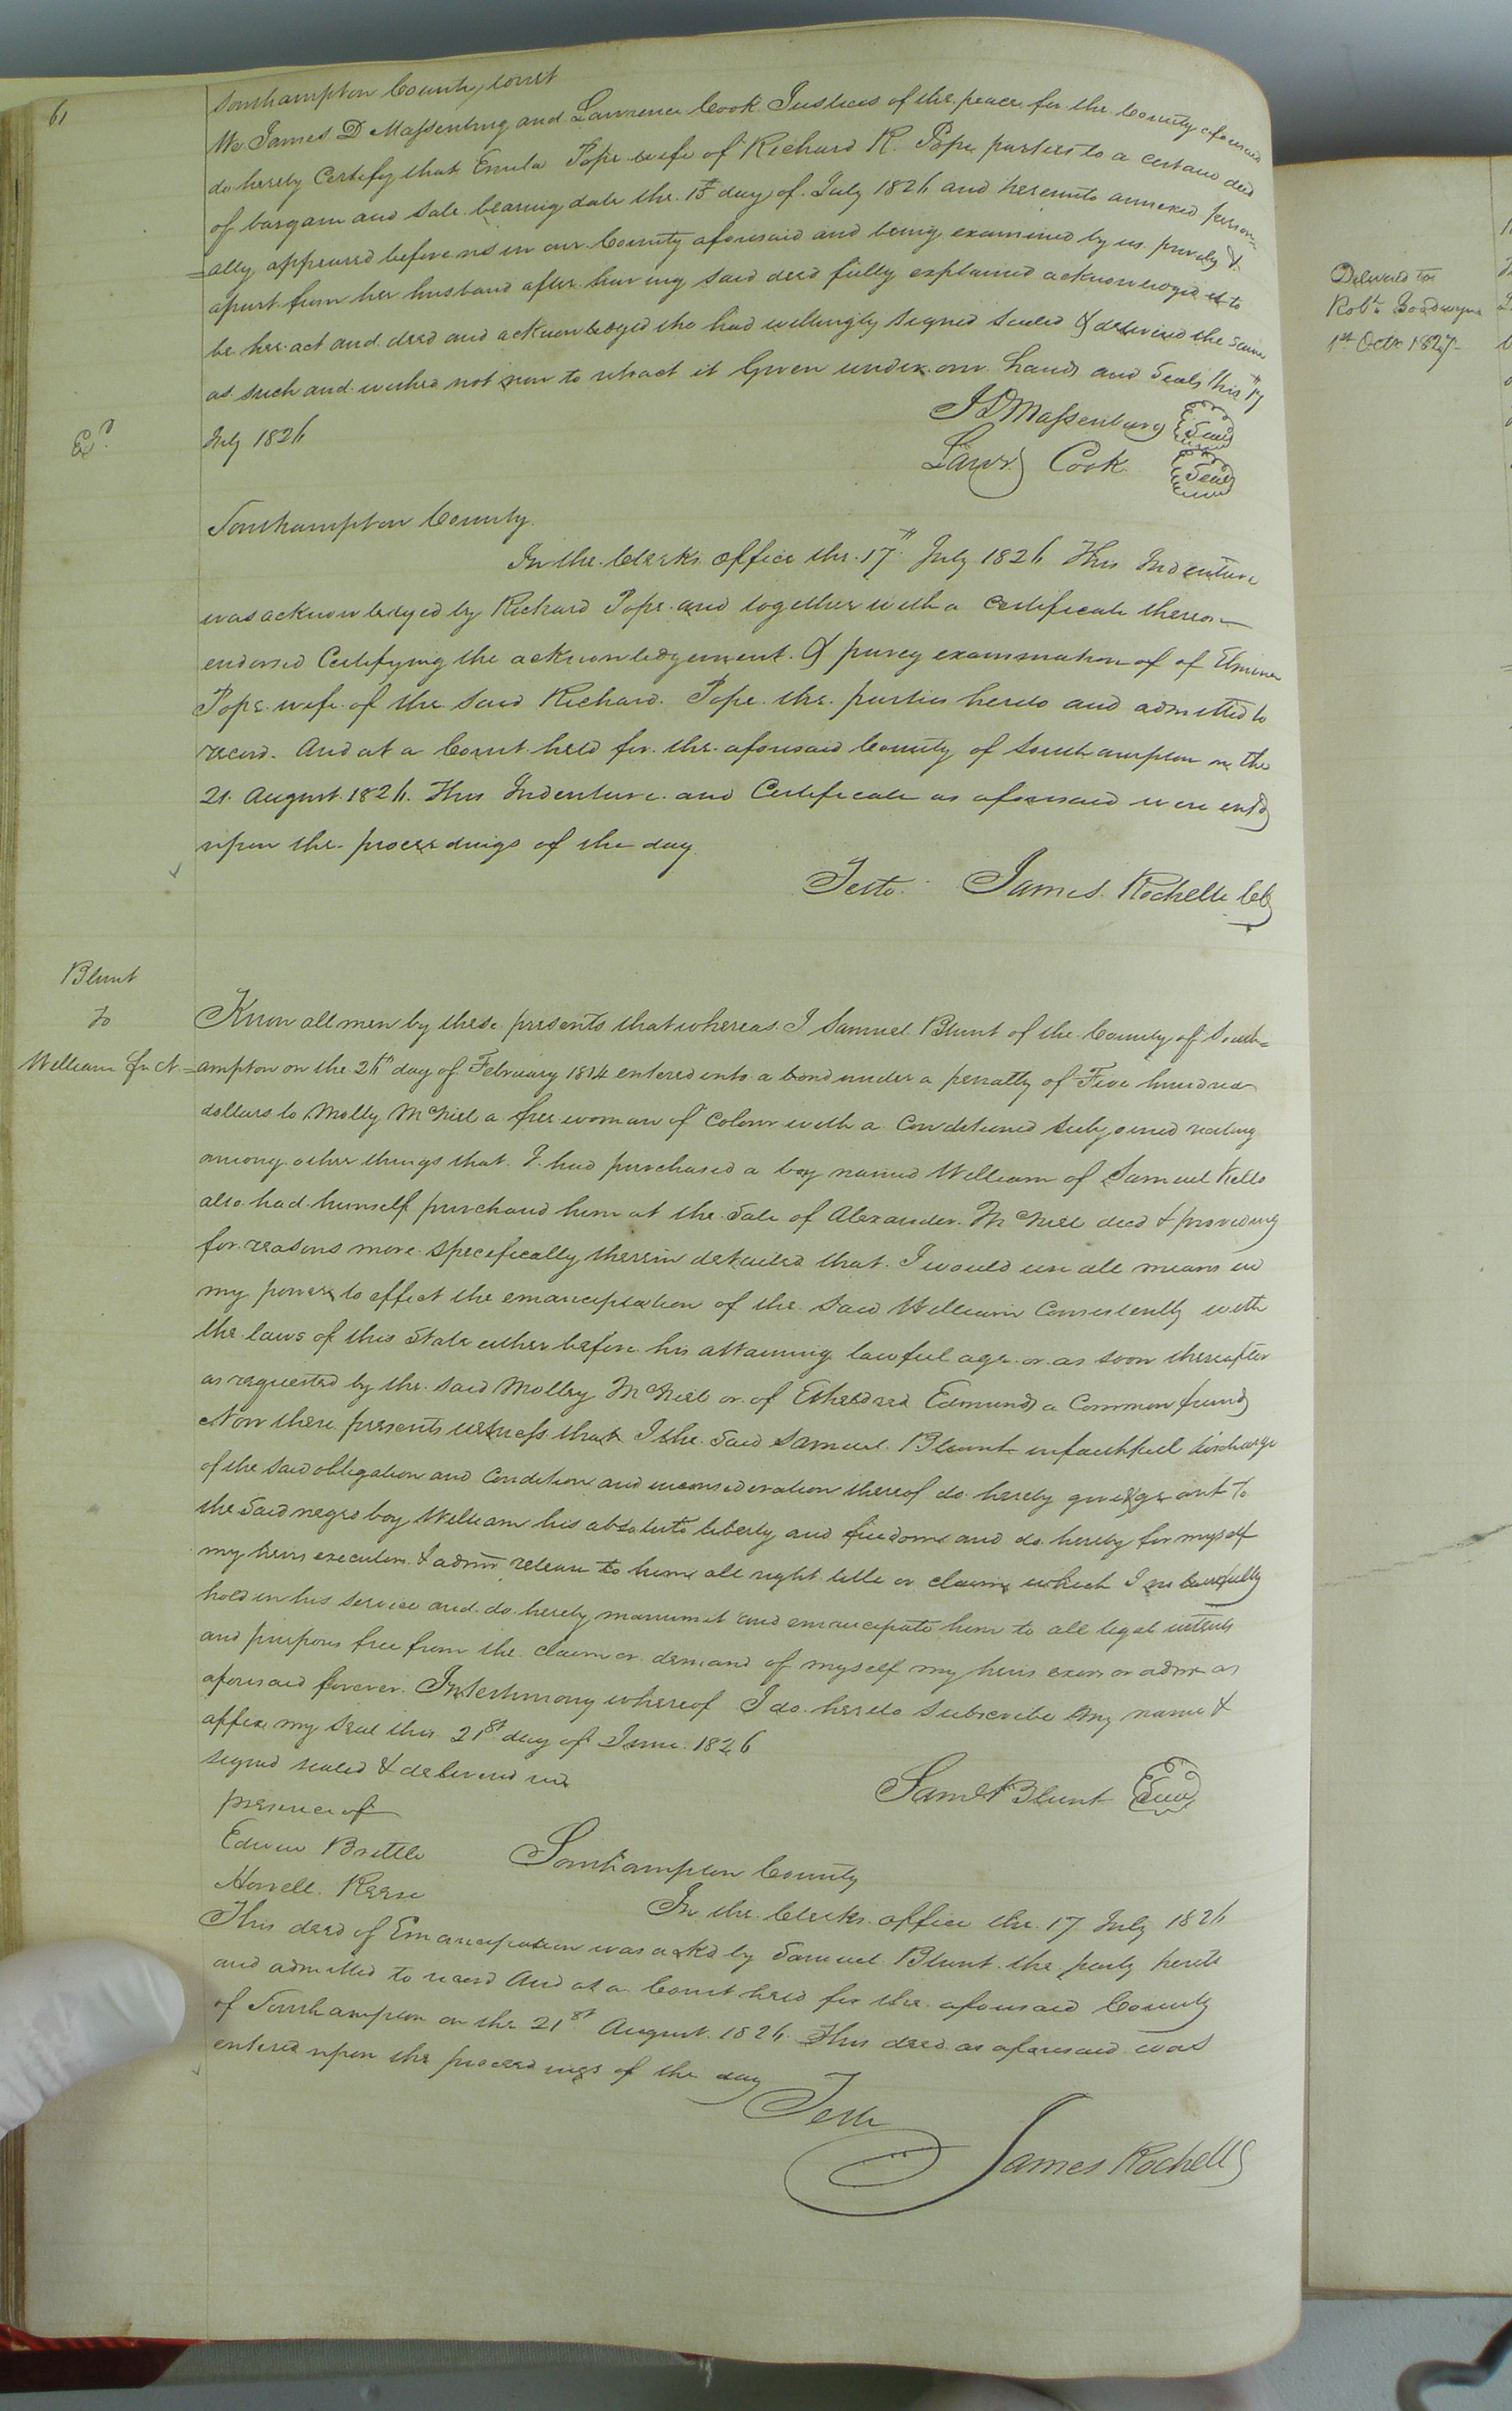 61
Southampton County, Court
We James D Massenburg and Lawrence Cook Justices of the peace for the County aforesaid
do hereby Certify that Pope wife of Richard R. Pope parties to a certain deed
of bargain and Sale bearing date the day of July 1826 and hereunto annexed person=
=ally appeared before us in our County aforesaid and being examined by us privily &
apart from her husband after having said deed fully explained acknowledged it to
be her act and deed and acknowledged she had willingly signed Sealed & delivered the same
as such and wished not now to retract it Given under our hands and Seals this 17th
Exd
July 1826
J D Massenburg Seal
Lawr. Cook Seal
Southampton County.
In the Clerks Office the 17th July 1826 This Indenture
was acknowledged by Richard Pope and together with a Certificate thereon
endorsed Certifying the acknowledgement & privy examination of of Elmina
Pope wife of the said Richard Pope the parties hereto and admitted to
record. And at a Court held for the aforesaid County of Southampton on the
21 August 1826. This Indenture and Certificate as aforesaid were entd
upon the proceedings of the day
Teste. James. Rochelle Clk
Blunt
to
William fr N
Know all men by these presents that whereas I Samuel Blunt of the County of South=
=ampton on the day of February 1814 entered into a bond under a penalty of Five hundred
dollars to Molly McNiel a free woman of Colour with a Conditioned Subjoined reciting
among other things that I had purchased a boy named William of Samuel Kello
also had himself purchased him at the Sale of Alexander McNiel decd & providing
for reasons more Specifically therein detailed that I would use all means in
my power to effect the emancipation of the Said William Consistently with
the laws of this State either before his attaining lawful age or as soon thereafter
as requested by the Said Molley McNiel or of Etheldred Edmunds a Common friend
Now these presents witness that I the Said Samuel Blunt in faithful discharge
of the said obligation and Condition and in consideration thereof do hereby give & grant to
the Said negro boy William his absolute liberty and freedom and do hereby for myself
my heirs executors & admrs release to him all right title or claim which I lawfully
hold in his service and do hereby manumit and emancipate him to all legal intents
and purposes free from the claim or demand of myself my heirs exors or admrs as
aforesaid forever. In testimony whereof I do hereto Subscribe my name &
affix my seal this 21st day of June 1826
signed sealed & delivered in
presence of
Saml Blunt Seal
Edwin Brittle
Howell
Southampton County
In the Clerks office the 17 July 1826
This deed of Emancipation was ackd by Samuel Blunt the party hereto
and admitted to record And at a Court held for the aforesaid County
of Southampton on the 21st August 1826 This deed as aforesaid was
entered upon the proceedings of the day
Teste
James Rochelle
Delivered to
Robt
1st Octr 1827